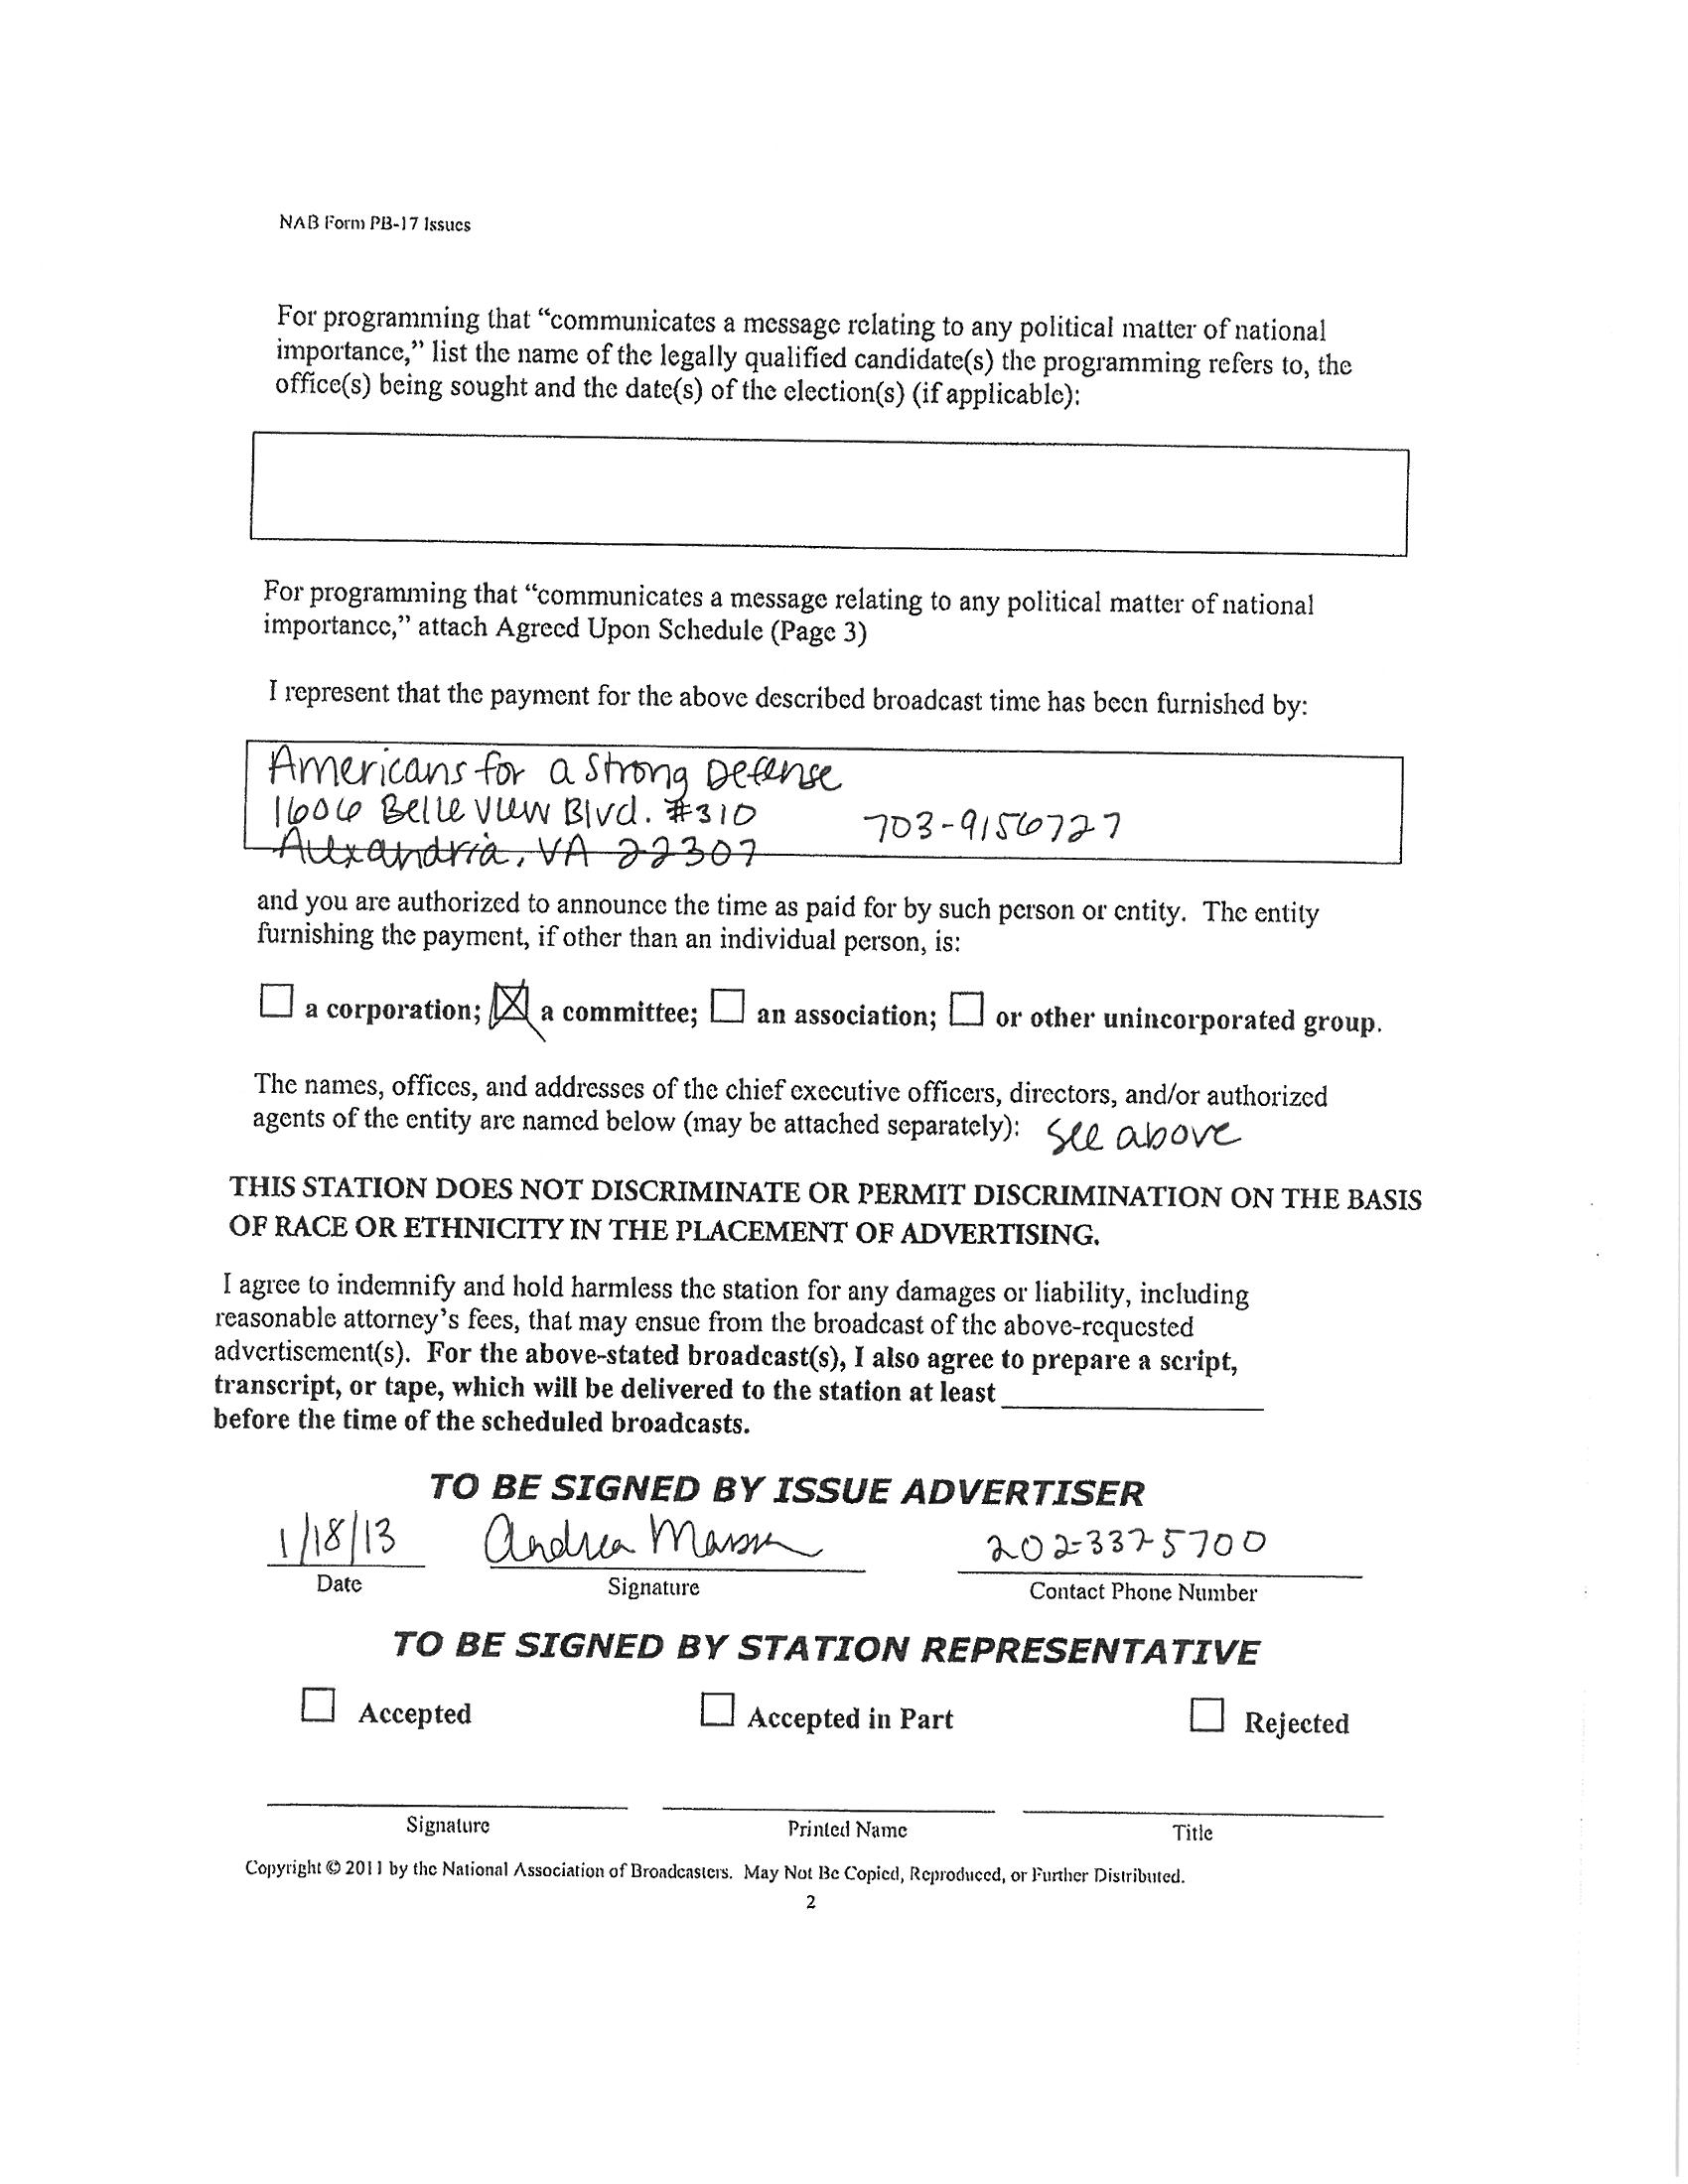 NAB Form PB-17 Issues
For programming that “communicates a message relating to any political matter of national
importance,” list the name of the legally qualified candidate(s) the programming refers to, the
office(s) being sought and the date(s) of the election(s) (if applicable):
For programming that “communicates a message relating to any political matter of national
importance,” attach Agreed Upon Schedule (Page 3)
I represent that the payment for the above described broadcast time has been furnished by:
Americans for a Strong Defense
1606 Belle View Blvd. #310 703-9156727
Alexandria, VA 22307
and you are authorized to announce the time as paid for by such person or entity. The entity
furnishing the payment, if other than an individual person, is:
a corporation; a committee; an association; or other unincorporated group.
The names, offices, and addresses of the chief executive officers, directors, and/or authorized
agents of the entity are named below (may be attached separately): See above
THIS STATION DOES NOT DISCRIMINATE OR PERMIT DISCRIMINATION ON THE BASIS
OF RACE OR ETHNICITY IN THE PLACEMENT OF ADVERTISING.
I agree to indemnify and hold harmless the station for any damages or liability, including
reasonable attorney’s fees, that may ensue from the broadcast of the above-requested
advertisement(s). For the above-stated broadcast(s), I also agree to prepare a script,
transcript, or tape, which will be delivered to the station at least
before the time of the scheduled broadcasts.
TO BE SIGNED BY ISSUE ADVERTISER
1/18/13 Andrea 202-337-5700
Date Signature Contact Phone Number
TO BE SIGNED BY STATION REPRESENTATIVE
Accepted Accepted in Part Rejected
Signature Printed Name Title
Copyright © 2011 by the National Association of Broadcasters. May Not Be Copied, Reproduced, or Further Distributed.
2